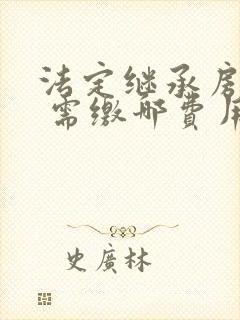 法定继承房
需缴哪费用
史廣林